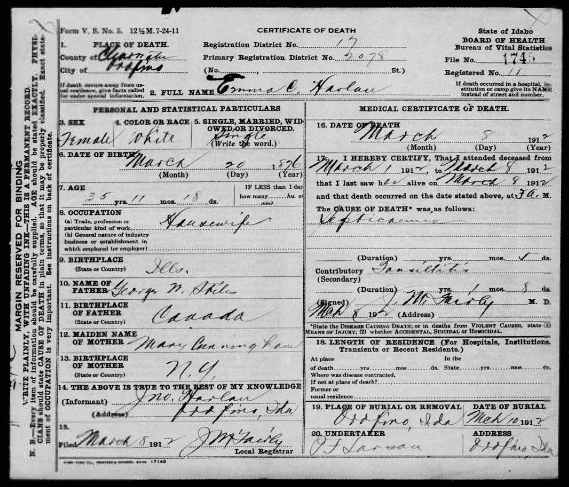 Form V. S. No. 5. 12½M. 7-24-11
CERTIFICATE OF DEATH
State of Idaho
BOARD OF HEALTH
Bureau of Vital Statistics
1. PLACE OF DEATH.
County of
City of Orofino
Registration District No. 17
Primary Registration District No. 2078
(No. St.)
File No. 1745
Registered No. 11
If death occurs away from usual residence, give facts called for under special information.
If death occurred in a hospital, institution or camp give its NAME instead of street and number.
2. FULL NAME Emma C. Harlan
PERSONAL AND STATISTICAL PARTICULARS
3. SEX
Female
4. COLOR OR RACE
White
5. SINGLE, MARRIED, WIDOWED OR DIVORCED.
Single
(Write the word.)
6. DATE OF BIRTH
March 20 1876
(Month) (Day) (Year)
7. AGE
35 yrs. 11 mos. 18 ds.
IF LESS than 1 day
how many hrs.
8. OCCUPATION
(a) Trade, profession or particular kind of work
Housewife
(b) General nature of industry business or establishment in which employed (or employer)
9. BIRTHPLACE
(State or Country)
Ills.
10. NAME OF FATHER
George N. Stiles
11. BIRTHPLACE OF FATHER
(State or Country)
Canada
12. MAIDEN NAME OF MOTHER
Mary Cunningham
13. BIRTHPLACE OF MOTHER
(State or Country)
N.Y.
14. THE ABOVE IS TRUE TO THE BEST OF MY KNOWLEDGE
(Informant) Jno. Harlan
(Address) Orofino, Ida
15.
Filed March 8 1912 J M Fairly
Local Registrar
MEDICAL CERTIFICATE OF DEATH.
16. DATE OF DEATH
March 8 1912
(Month) (Day) (Year)
17. I HEREBY CERTIFY, That I attended deceased from
March 1 1912 to March 8 1912
that I last saw alive on March 8 1912
and that death occurred on the date stated above, at M.
The CAUSE OF DEATH* was as follows:
Septicaemia
(Duration) yrs. mos. ds.
Contributory Tonsilitis
(Secondary)
(Duration) yrs. mos. 8 ds.
(Signed) J. M. Fairly M. D.
Mch 8 1912 (Address)
*State the DISEASE CAUSING DEATH; or in deaths from VIOLENT CAUSES, state (1) MEANS OF INJURY; (2) whether ACCIDENTAL, SUICIDAL or HOMICIDAL.
18. LENGTH OF RESIDENCE (For Hospitals, Institutions, Transients or Recent Residents.)
At place of death yrs. mos. ds. State yrs. mos. ds.
Where was disease contracted,
If not at place of death?
Former or usual residence
19. PLACE OF BURIAL OR REMOVAL
Orofino, Ida
DATE OF BURIAL
Mch 10 1912
20. UNDERTAKER
ADDRESS
Orofino, Ida
MARGIN RESERVED FOR BINDING
WRITE PLAINLY, WITH UNFADING INK—THIS IS A PERMANENT RECORD.
N. B.—Every item of information should be carefully supplied. AGE should be stated EXACTLY. PHYSICIANS should state CAUSE OF DEATH in plain terms, so that it may be properly classified. Exact statement of OCCUPATION is very important. See instructions on back of certificate.